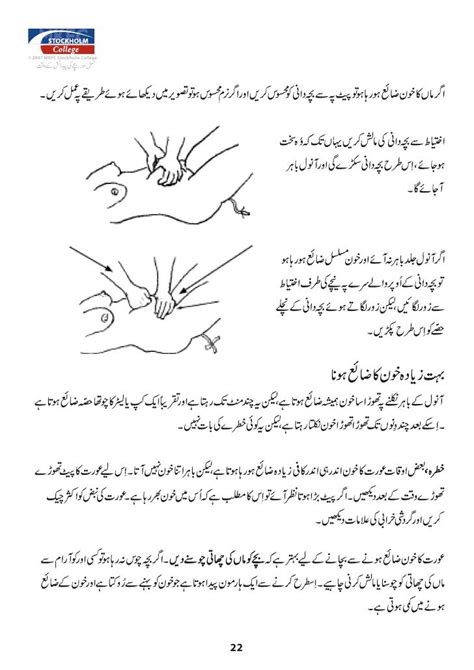 STOCKHOLM
College
© 2007 MWFC Stockholm College
اگر ماں کا خون ضائع ہو رہا ہو تو پیٹ پہ سے بچہ دانی کو محسوس کریں اور اگر نرم محسوس ہو تو تصویر میں دیکھائے ہوئے طریقے پہ عمل کریں۔
اختیاط سے بچہ دانی کی مالش کریں یہاں تک کہ وُہ سخت
ہو جائے، اِس طرح بچہ دانی سکڑے گی اور آنول باہر
آ جائے گا۔
اگر آنول جلد باہر نہ آئے اور خون مسلسل ضائع ہو رہا ہو
تو بچہ دانی کے اُوپر والے سرے پہ نیچے کی طرف اختیاط
سے زور لگائیں، لیکن زور لگاتے ہوئے بچہ دانی کے نچلے
حصّے کو اِس طرح پکڑیں۔
بہت زیادہ خون کا ضائع ہونا
آنول کے باہر نکلنے پہ تھوڑا سا خون ہمیشہ ضائع ہوتا ہے، لیکن یہ چند منٹ تک رہتا ہے اور تقریباً ایک کپ یا لیٹر کا چوتھا حصہ ضائع ہوتا ہے
۔ اِسکے بعد چند دِنوں تک تھوڑا تھوڑا خون نکلتا رہتا ہے، لیکن یہ کوئی خطرے کی بات نہیں۔
خطرہ، بعض اوقات عورت کا خون اندر ہی اندر کافی زیادہ ضائع ہو رہا ہوتا ہے، لیکن باہر اتنا خون نہیں آتا۔ اِس لیے عورت کا پیٹ تھوڑے
تھوڑے وقت کے بعد دیکھیں۔ اگر پیٹ بڑا ہوتا نظر آئے تو اِس کا مطلب ہے کہ اُس میں خون بھر رہا ہے۔ عورت کی نبض کو اکثر چیک
کریں اور گردشی خرابی کی علامات دیکھیں۔
عورت کا خون ضائع ہونے سے بچانے کے لیے بہتر ہے کہ بچے کو ماں کی چھاتی چوسنے دیں۔ اگر بچہ چوس نہ رہا ہو تو کسی اور کو آرام سے
ماں کی چھاتی کو چوسنا یا مالش کرنی چاہیے۔ اِسطرح کرنے سے ایک ہارمون پیدا ہوتا ہے جو خون کو بہنے سے رُوکتا ہے اور خون کے ضائع
ہونے میں کمی ہوتی ہے۔
22